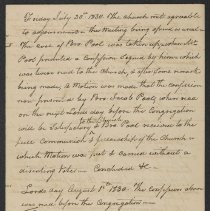 Friday July 30th 1830. The Church met agreeable
to adjournment - the meeting being opened as usual -
The case of Bro. Pool was taken up, when Br.
Pool produced a confession signed by him which
was later read to the Church, & after some remark
being made, a Motion was made that the confession
now presented by Bro. Jacob Pool, when read
on the next Lords day before the Congregation
will be satisfactory to the Church & Bro. received to the
full Communion & fellowship of the Church
which Motion was put & carried without a
dissenting Vote - Concluded &c
Lords day August 1st 1830. The confession above
was read before the Congregation -